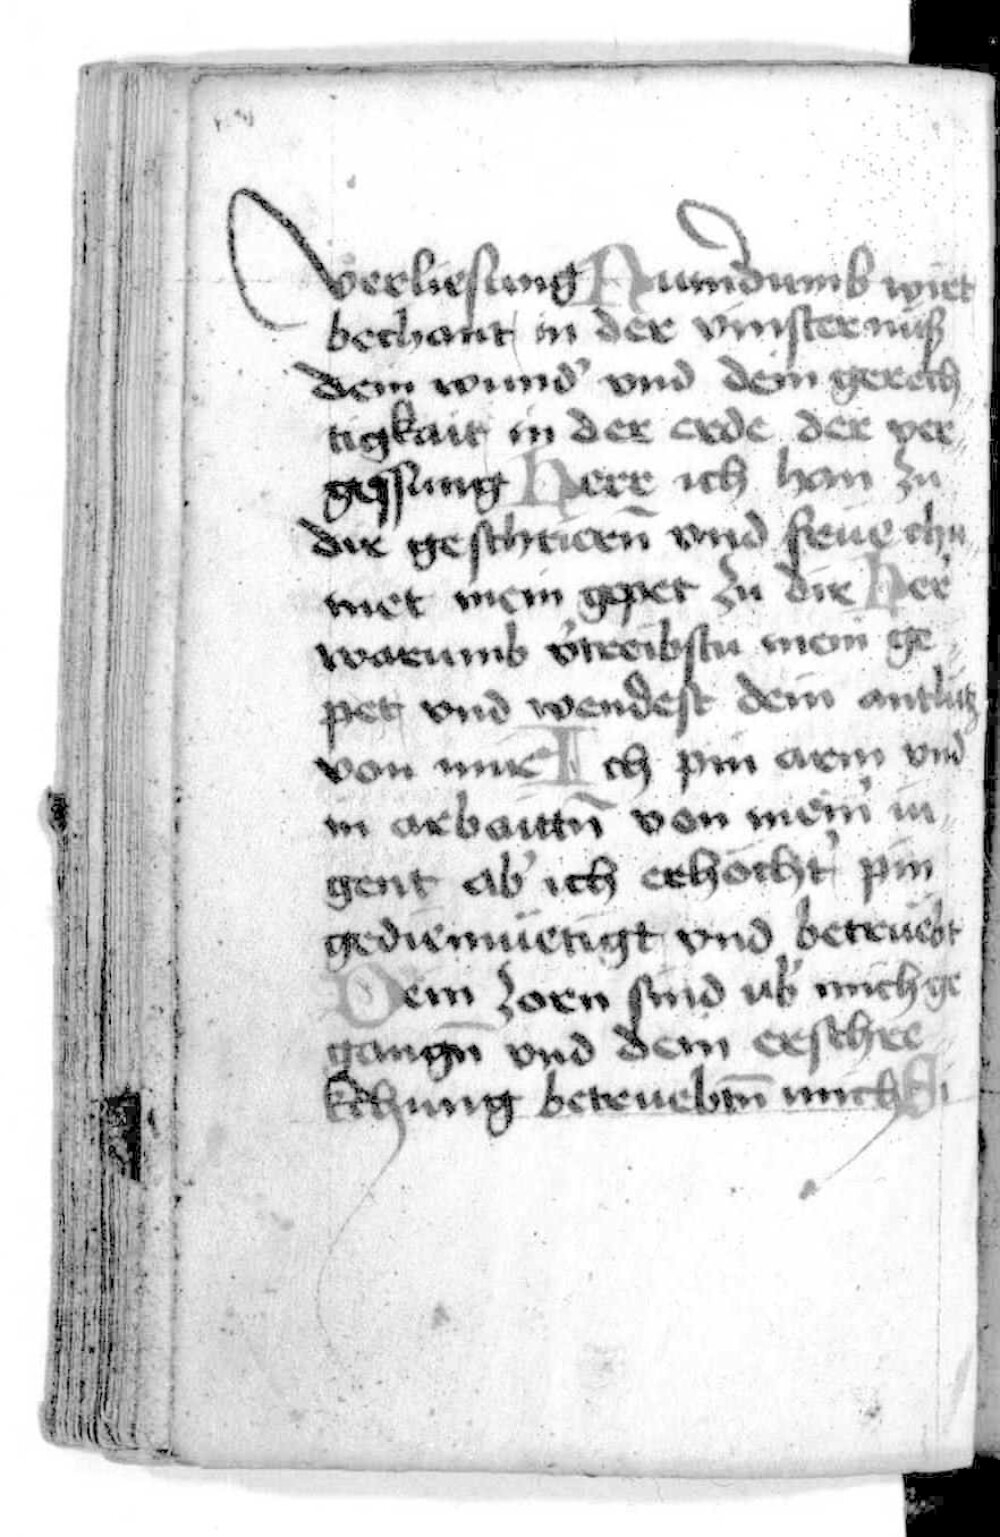 verliesung Numdumb wirt
bechant in der vinsternüß
dein wund' vnd dein gerech
tigkait in der erde der ver
gessung Herr ich han zu
dir geschrieren̄ vnd frue chu
met mein gepet zu dir Her'
warumb v'treibstu mein ge
pet vnd wendest dein antlütz
von mir Ich pin arm vnd
in arbaittn̄ von mein' iu
gent ab' ich erhöcht' pin
gediemüetigt vnd betruebt
Dein zorn sind üb' mich ge
gangn̄ vnd dein erschre
kchung betruebtn̄ mich Si